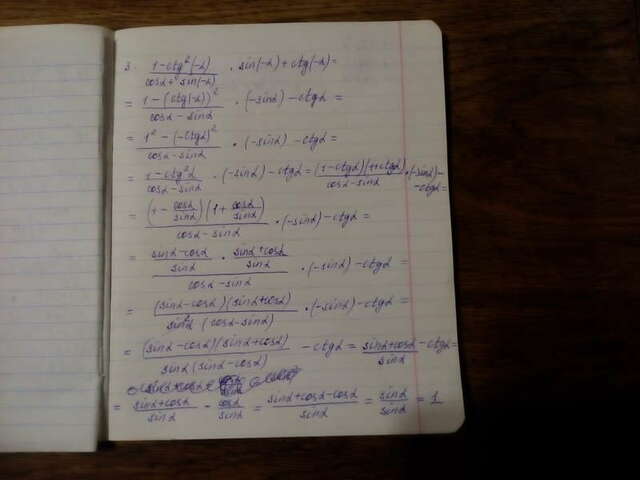 3. (1-ctg²(-α))/(cosα+sin(-α)) · sin(-α)+ctg(-α)=
= (1-(ctg(-α))²)/(cosα-sinα) · (-sinα)-ctgα =
= (1²-(-ctgα)²)/(cosα-sinα) · (-sinα)-ctgα=
= (1-ctg²α)/(cosα-sinα) · (-sinα)-ctgα = ((1-ctgα)(1+ctgα))/(cosα-sinα) · (-sinα)-
-ctgα=
= ((1-cosα/sinα)(1+cosα/sinα))/(cosα-sinα) · (-sinα)-ctgα=
= ((sinα-cosα)/sinα · (sinα+cosα)/sinα)/(cosα-sinα) · (-sinα)-ctgα =
= ((sinα-cosα)(sinα+cosα))/(sin²α (cosα-sinα)) · (-sinα)-ctgα =
= ((sinα-cosα)(sinα+cosα))/(sinα(sinα-cosα)) - ctgα = (sinα+cosα)/sinα - ctgα=
= (sinα+cosα)/sinα - cosα/sinα = (sinα+cosα-cosα)/sinα = sinα/sinα = 1